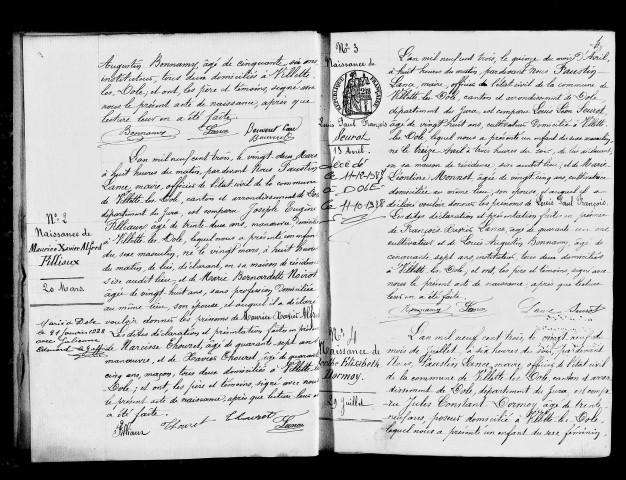 Augustin Bonnamy, âgé de cinquante six ans
instituteur, tous deux domiciliés à Villette-
les-Dole, et ont, les père et témoins, signé avec
nous le présent acte de naissance, après que
lecture leur en a été faite.
Bonnamy Lance
N° 2
Naissance de
Maurice Xavier Alfred
Filliaux
20 Mars
Marié à Dole
le 21 janvier 1928
avec
L'an mil neuf cent trois, le vingt deux Mars
à huit heures du matin, pardevant Nous Faustin
Lance, maire, officier de l'état civil de la commune
de Villette-les-Dole, canton et arrondissement de Dole
département du Jura, est comparu Joseph Eugène
Filliaux âgé de trente deux ans, manœuvre, domicilié
à Villette-les-Dole, lequel nous a présenté un enfant
du sexe masculin, né le vingt mars, à huit heures
du matin, de lui, déclarant, en sa maison de résidence
sise audit lieu, et de Marie Bernardette Noirot
âgée de vingt-huit ans, sans profession, domiciliée
au même lieu, son épouse, et auquel il a déclaré
vouloir donner les prénoms de Maurice Xavier Alfred
Les dites déclaration et présentation faites en présence
de Narcisse Thouret, âgé de quarante sept ans
manœuvre, et de Xavier Thouret, âgé de quarante
cinq ans, maçon, tous deux domiciliés à Villette-les-
Dole; et ont, les père et témoins, signé avec nous
le présent acte de naissance, après que lecture leur en
a été faite.
Filliaux Thouret Thouret Lance
N° 3
Naissance de
Louis Paul François
Seurot
13 Avril
Décédé
à DOLE
L'an mil neuf cent trois, le quinze du mois d'Avril,
à huit heures du matin, pardevant Nous Faustin
Lance, maire, officier de l'état civil de la commune de
Villette-les-Dole, canton et arrondissement de Dole,
département du Jura, est comparu Louis Léon Seurot,
âgé de vingt-huit ans, cultivateur domicilié à Villette-
les-Dole, lequel nous a présenté un enfant du sexe masculin,
né le treize Avril à trois heures du soir, de lui, déclarant,
en sa maison de résidence, sise audit lieu, et de Marie
Léontine Monnot, âgée de vingt cinq ans, cultivatrice
domiciliée au même lieu, son épouse, et auquel il a
déclaré vouloir donner les prénoms de Louis Paul François.
Les dites déclaration et présentation faites en présence
de François Xavier Lance, âgé de quarante un ans
cultivateur et de Louis Augustin Bonnamy, âgé de
cinquante sept ans, instituteur, tous deux domiciliés
à Villette-les-Dole, et ont, les père et témoins, signé avec
nous le présent acte de naissance, après que lecture
leur en a été faite.
Bonnamy Lance Lance Seurot
N° 4
Naissance de
Elisabeth
Mormoy
29 Juillet
L'an mil neuf cent trois, le vingt neuf du
mois de juillet, à six heures du soir, pardevant
Nous, Faustin Lance, maire, officier de l'état civil
de la commune de Villette-les-Dole, canton et arron-
dissement de Dole, département du Jura, est compa-
ru Jules Constant Mormoy, âgé de trente-
neuf ans, poseur, domicilié à Villette-les-Dole,
lequel nous a présenté un enfant du sexe féminin,